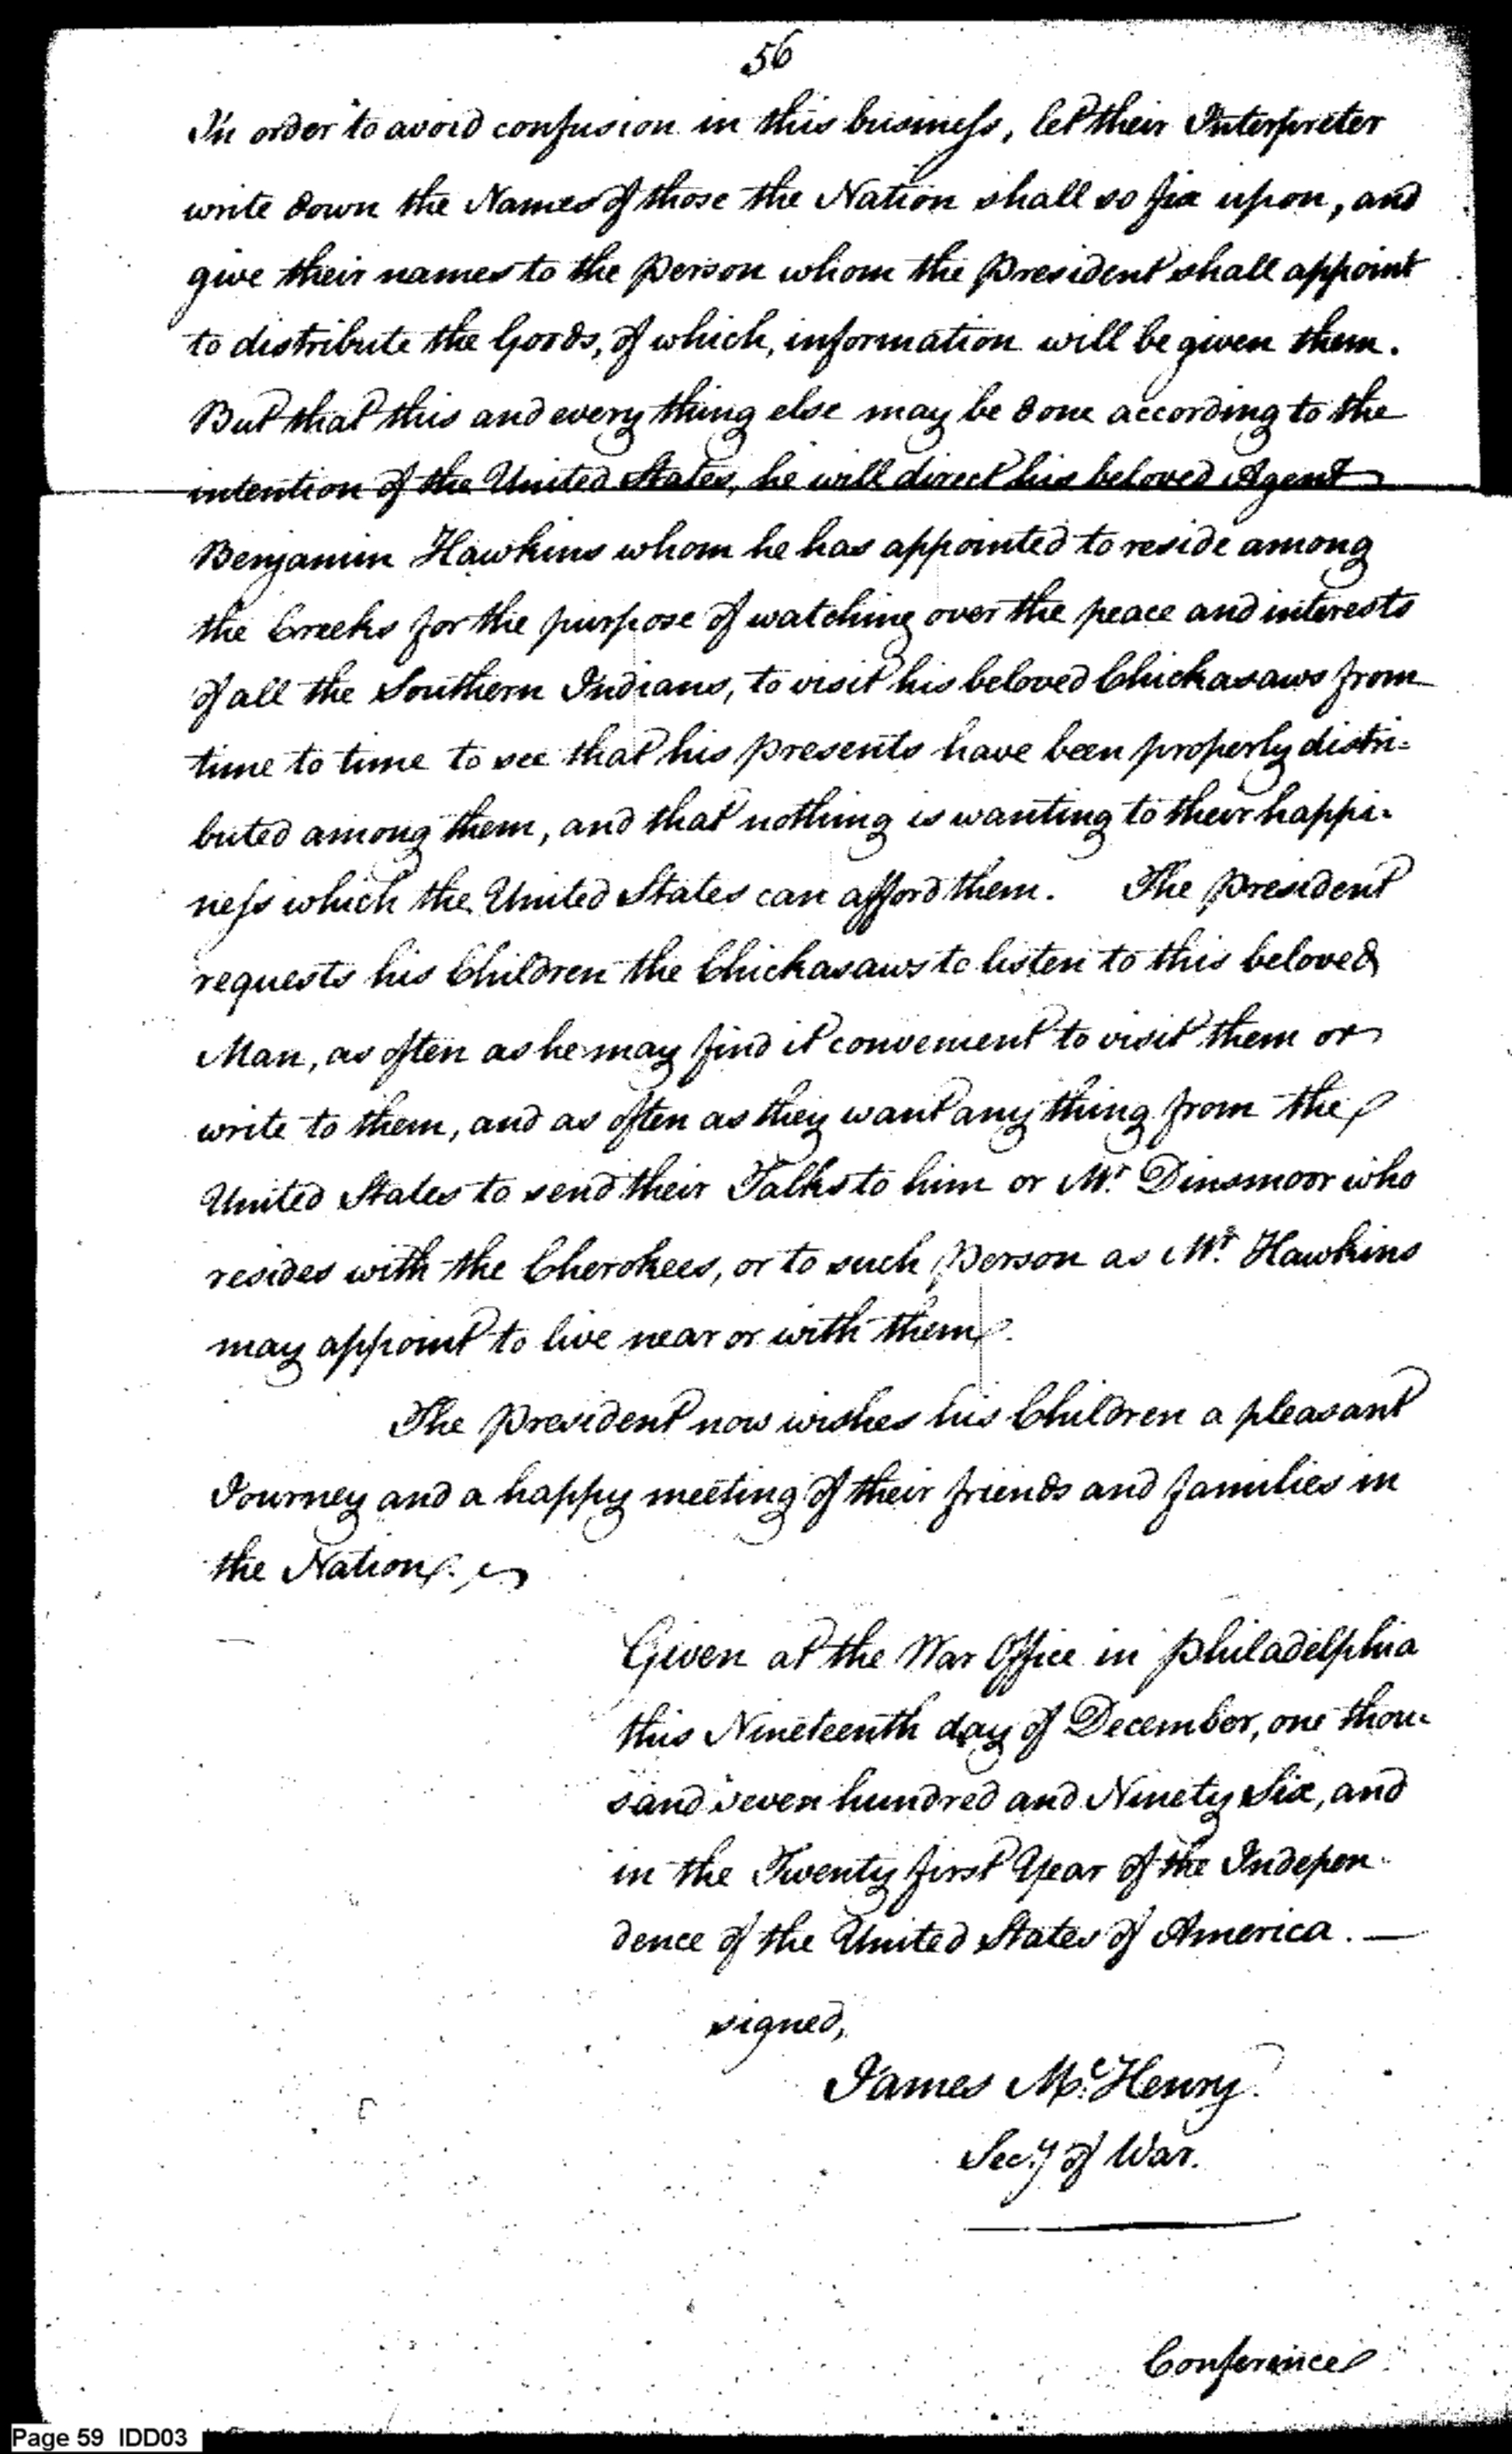 56
In order to avoid confusion in this business, let their Interpreter
write down the Names of those the Nation shall so fix upon, and
give their names to the person whom the President shall appoint
to distribute the Goods, of which, information will be given them.
But that this and every thing else may be done according to the
intention of the United States, he will direct his beloved Agent
Benjamin Hawkins whom he has appointed to reside among
the Creeks for the purpose of watching over the peace and interests
of all the Southern Indians, to visit his beloved Chickasaws from
time to time to see that his presents have been properly distri=
buted among them, and that nothing is wanting to their happi=
ness which the United States can afford them. The President
requests his Children the Chickasaws to listen to this beloved
Man, as often as he may find it convenient to visit them or
write to them, and as often as they want any thing from the
United States to send their Talks to him or Mr. Dinsmoor who
resides with the Cherokees, or to such person as Mr. Hawkins
may appoint to live near or with them.
The President now wishes his Children a pleasant
Journey and a happy meeting of their friends and families in
the Nation.
Given at the War Office in Philadelphia
this Nineteenth day of December, one thou=
sand seven hundred and Ninety Six, and
in the Twenty first Year of the Indepen-
dence of the United States of America. —
signed,
James McHenry.
Secy of War.
Conference
Page 59 IDD03